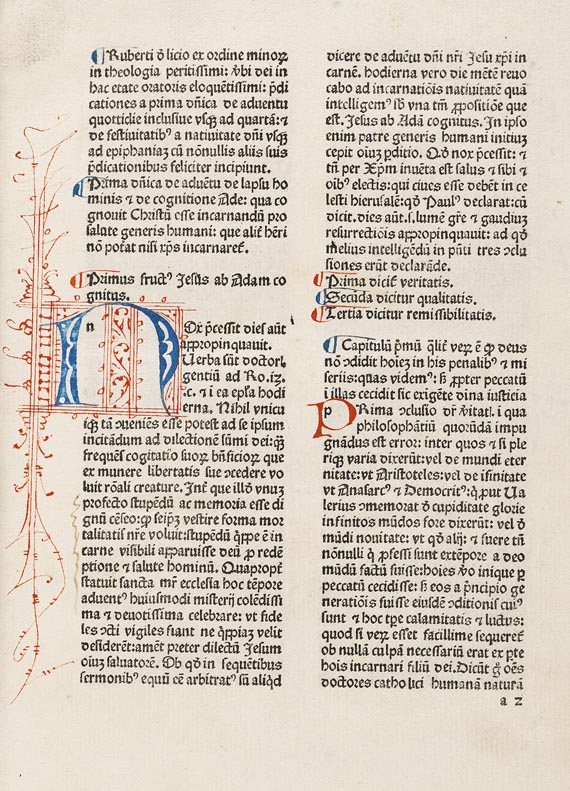 Ruberti ð licio ex ordine minoꝝ
in theologia peritissimi: v̄bi dei in
hac etate oratoris eloquētissimi: p̄di
cationes a prima dn̄ica de aduentu
quottidie inclusiue vsqꝫ ad quartā: ⁊
de festiuitatibꝰ a natiuitate dn̄i vsqꝫ
ad epiphaniaꝫ cū nōnullis aliis suis
p̄dicationibus feliciter incipiunt.
Prima dn̄ica de aduētu de lapsu ho
minis ⁊ de cognitione Ade: qua co
gnouit Christū esse incarnandū pro
salute generis humani: que alit̄ hēri
nō pot̄at nisi xp̄s incarnaret̄.
Primus fructꝰ Jesus ab Adam co
gnitus.
n Ox p̄cessit dies aūt
appropinquauit.
Uerba sūt doctoꝝ
gentiū ad Ro. iz.
.c. ⁊ i ea ep̄la hodi
erna. Nihil vnicu
iqꝫ tā ↄueniēs esse potest ad se ipsum
incitādum ad dilectionē sūmi dei: qꝫ
frequēs cogitatio suoꝝ bn̄ficioꝝ que
ex munere libertatis sue ↄcedere vo
luit roīali creature. Int̄ que illō vnuꝫ
profecto stupēdū ac memoria esse di
gnū cēseo: ꝙ seip̄ꝫ vestire forma mor
talitatis nr̄e voluit: stupēdū q̄ppe ē in
carne visibili apparuisse deū ꝓ redē
ptione ⁊ salute hominū. Quapropt̄
statuit sancta mr̄ ecclesia hoc tēpore
aduentꝰ huiusmodi misterij colēdissi
ma ⁊ deuotissima celebrare: vt fide
les ↄcti vigiles fiant ne q̄ppiaꝫ velit
desiderēt: amēt preter dilectū Jesum
oiuꝫ saluatorē. Ob qd̄ in sequētibus
sermonibꝰ equū eē arbitratꝰ sū aliqd̄
dicere de aduētu dn̄i nr̄i Jesu xp̄i in
carnē. hodierna vero die mētē reuo
cabo ad incarnatiōis natiuitatē quā
intelligemꝰ sb̄ vna tm̄ ꝓpositiōe que
est. Jesus ab Adā cognitus. In ipso
enim patre generis humani initiuꝫ
cepit oiuꝫ ꝑditio. Qd̄ nox p̄cessit: ⁊
tn̄ per Xp̄m inuēta est salus ⁊ sibi ⁊
oibꝰ electis: qui ciues esse debēt in ce
lesti hierusalē: qd̄ Paulꝰ declarat: cū
dicit. dies aūt .s. lumē gr̄e ⁊ gaudiuꝫ
resurrectiōis appropinquauit: ad qd̄
melius intelligēdū in pūti tres ↄclu
siones erūt declarāde.
Prima dicit̄ veritatis.
Secūda dicitur qualitatis.
Tertia dicitur remissibilitatis.
Capitulū pr̄mū q̄lit̄ veꝝ ē ꝙ deus
nō ↄdidit hoieꝫ in his penalibꝰ ⁊ mi
seriis: quas videmꝰ: sꝫ ꝓpter peccatū
i illas cecidit sic exigēte dīna iusticia
p Rima ↄclusio dr̄ v̄itatis. i qua
philosophātiū quorūdā impu
gnādus est error: inter quos ⁊ si ple
riqꝫ varia dixerūt: vel de mundi eter
nitate: vt Aristoteles: vel de ifinitate
vt Anasarcꝰ ⁊ Democritꝰ: q̄ put Ua
lerius ↄmemorat ð cupiditate glorie
infinitos mūdos fore dixerūt: vel ð
mūdi nouitate: vt qd̄ alij: ⁊ fuere tn̄
nōnulli q̄ ꝓfessi sunt extēpore a deo
mūdū factū fuisse: hoies v̄o inique ꝑ
peccatū cecidisse: sꝫ eos a p̄ncipio ge
neratiōis fuisse eiusdē ↄditionis cuiꝰ
sunt ⁊ hoc tp̄e calamitatis ⁊ luctus:
quod si veꝝ esset facillime sequeret̄
ob nullā culpā necessariū erat ex pt̄e
hois incarnari filiū dei. Dicūt g̊ oēs
doctores catholici humanā naturā
a z